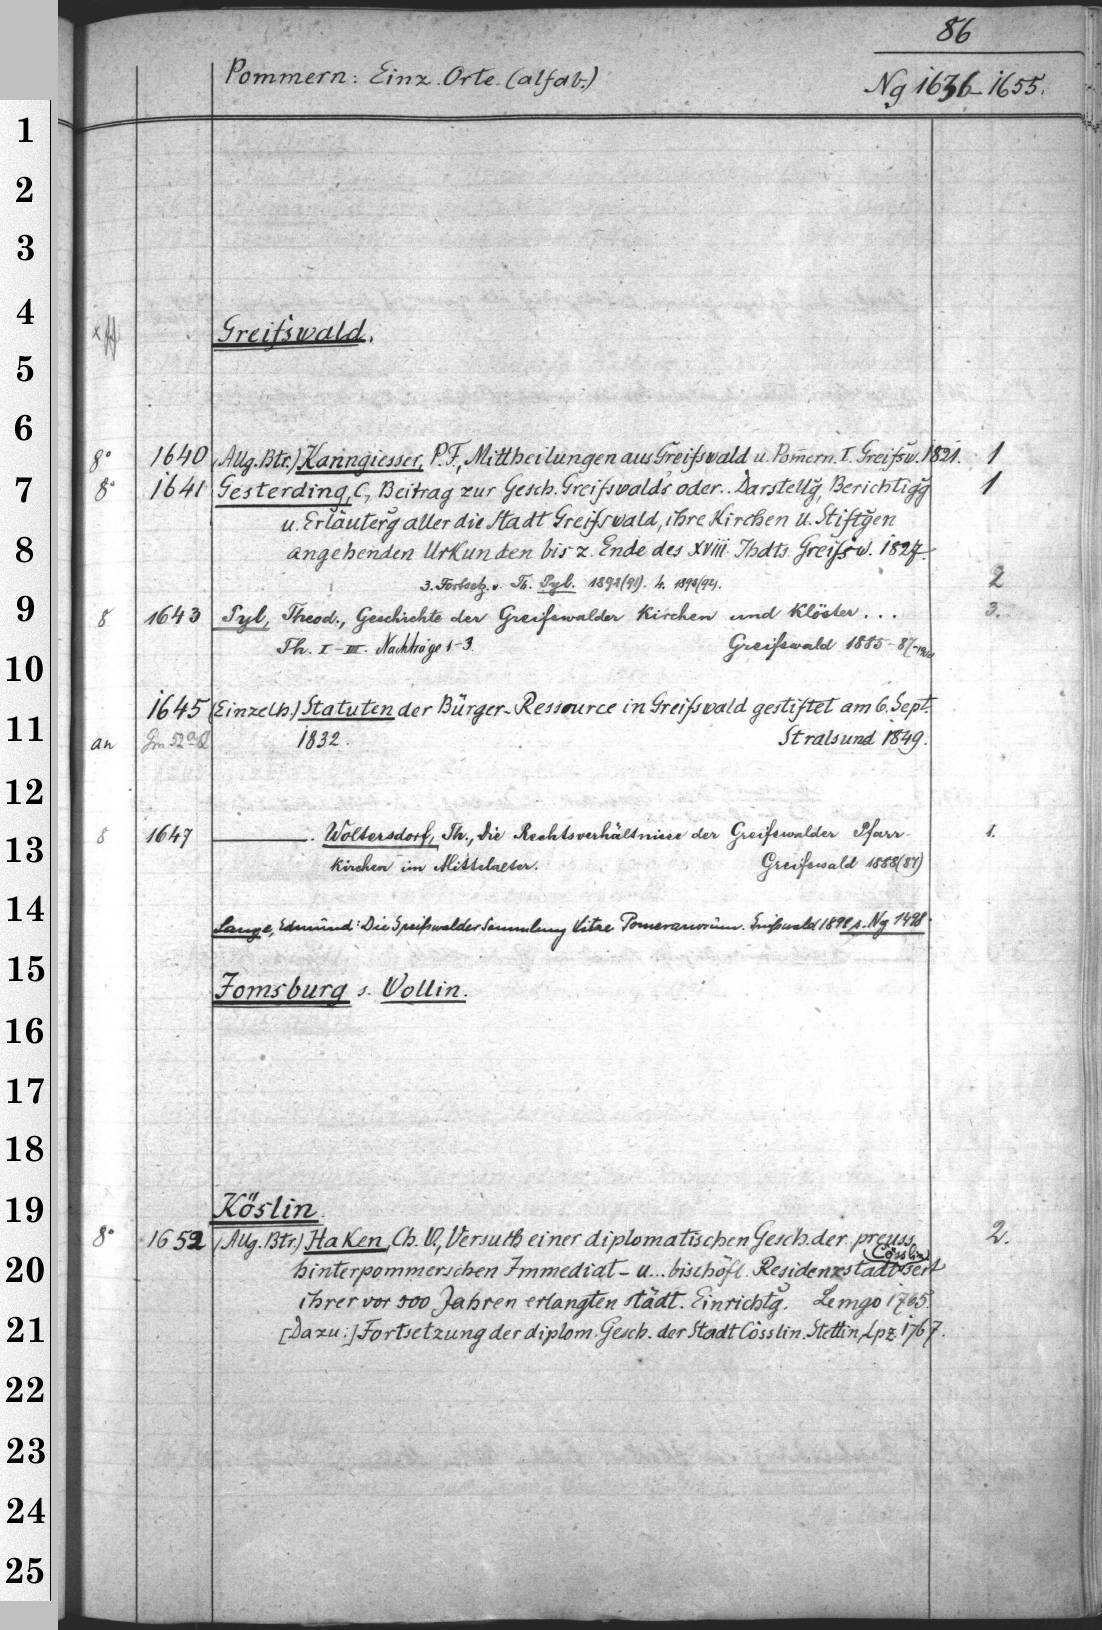 86
Pommern: Einz. Orte. (alfab.) Ng 1636-1655.
1
2
3
4
Greifswald.
5
6
8° 1640 (Allg. Btr.) Kanngiesser, P. F., Mittheilungen aus Greifswald u. Pom̄ern. T. Greifsw. 1821. 1
7
8° 1641 Gesterding, C., Beitrag zur Gesch. Greifswalds oder.. Darstellg̃, Berichtigg̃ 1
u. Erläuterg̃ aller die Stadt Greifswald, ihre Kirchen u. Stiftg̃en
8
angehenden Urkunden bis z. Ende des XVIII. Jhdts. Greifsw. 1827.
3. Fortsetz. v. Th. Pyl. 1892(91). 4. 1892(94). 2
9
8 1643 Pyl, Theod., Geschichte der Greifswalder Kirchen und Klöster... 3.
Th. I-III. Nachträge 1-3. Greifswald 1885-87-1900
10
1645 (Einzelh.) Statuten der Bürger-Ressource in Greifswald gestiftet am 6. Sept.
11
an 1832. Stralsund 1849.
12
8 1647 ———. Woltersdorf, Th., Die Rechtsverhältnisse der Greifswalder Pfarr- 1.
13
kirchen im Mittelalter. Greifswald 1888(87)
14
Lange, Edmund: Die Greifswalder Sammlung Vitae Pomeranorum. Greifswald 1898 s. Ng 1498
15
Jomsburg s. Wollin.
16
17
18
19
Köslin.
8° 1652 (Allg. Btr.) Haken, Ch. W., Versuch einer diplomatischen Gesch. der preuss. 2.
(Cösslin)
20
hinterpommerschen Immediat- u... bischöfl. Residenzstadt seit
ihrer vor 500 Jahren erlangten städt. Einrichtg̃. Lemgo 1765.
21
[Dazu:] Fortsetzung der diplom. Gesch. der Stadt Cösslin. Stettin, Lpz. 1767.
22
23
24
25